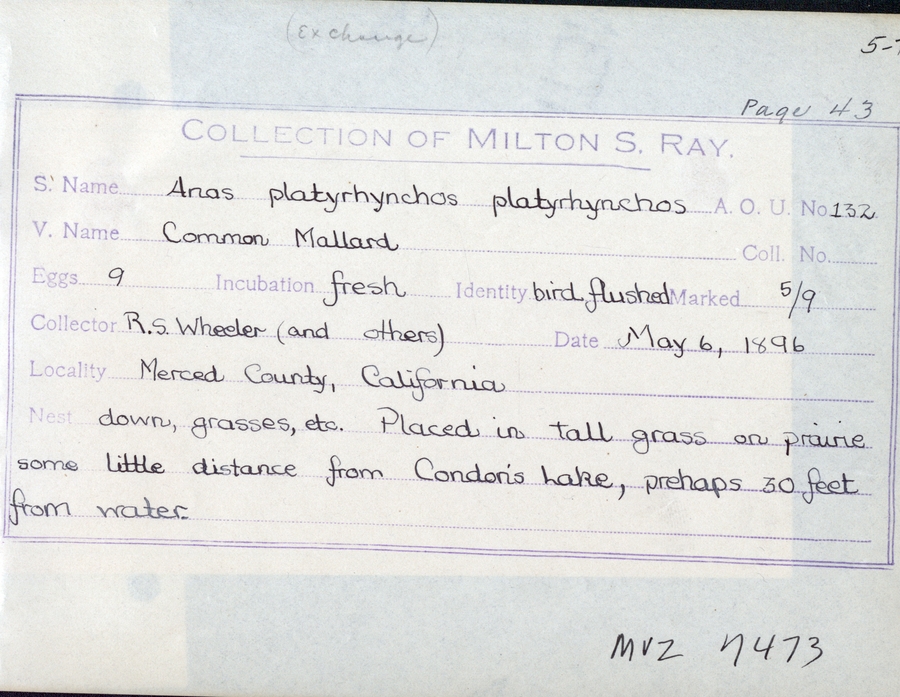 (Exchange)
Page 43
COLLECTION OF MILTON S. RAY.
S. Name Anas platyrhynchos platyrhynchos A. O. U. No. 132
V. Name Common Mallard Coll. No.
Eggs 9 Incubation fresh Identity bird flushed Marked 5/9
Collector R.S. Wheeler (and others) Date May 6, 1896
Locality Merced County, California
Nest down, grasses, etc. Placed in tall grass on prairie
some little distance from Condon's Lake, prehaps 30 feet
from water.
MVZ 7473